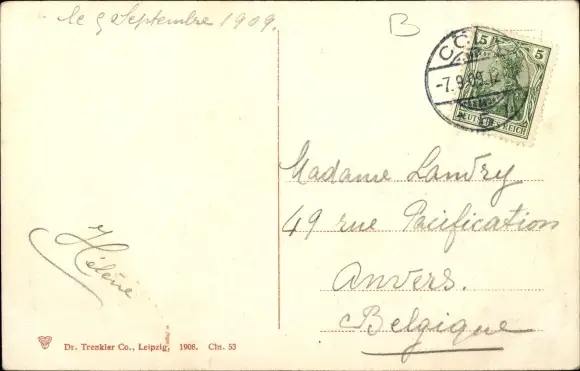 le 9 Septembre 1909.
B
5 5
CÖ
-7.9.09.12
DEUTSCHES REICH
Madame Landry
49 rue Pacification
Anvers.
Belgique
Hélène
Dr. Trenkler Co., Leipzig, 1908. Chn. 53